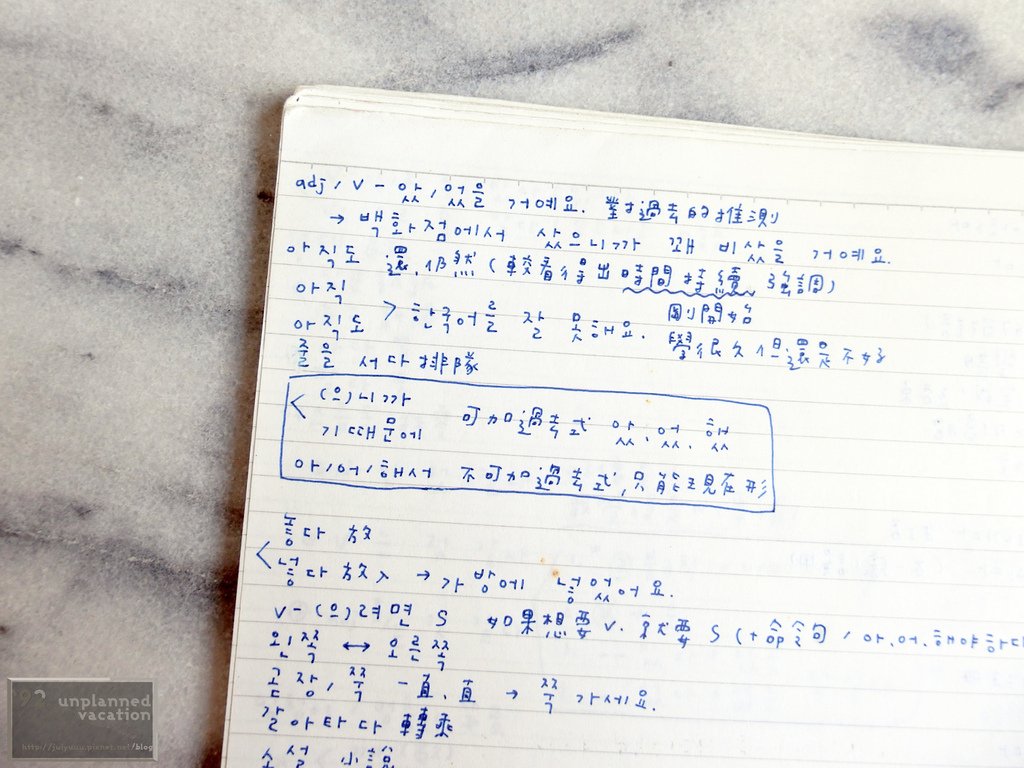 adj, V - 았, 었을 거예요. 對過去的推測
→ 백화점에서 샀으니까 꽤 비쌌을 거예요.
아직도 還, 仍然 (較看得出時間持續 強調)
아직 剛開始
아직도 > 한국어를 잘 못해요. 學很久但還是不好
줄을 서다 排隊
< (으)니까 可加過去式 았, 었, 했
기 때문에
아/어/해서 不可加過去式, 只能現在形
< 놓다 放
넣다 放入 → 가방에 넣었어요.
V - (으)려면 S 如果想要 V. 就要 S (+ 命令句 / 아.어.해야하다
왼쪽 ↔ 오른쪽
곧장, 쭉 一直.直 → 쭉 가세요.
갈아타다 轉乘
소설 小說
unplanned
vacation
http://juiyuuu.pixnet.net/blog